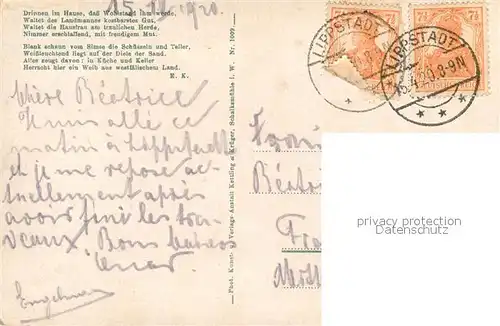 15. 1920.
Drinnen im Hause, daß Wohlstand ihm werde,
Waltet des Landmannes kostbarstes Gut,
Waltet die Hausfrau am traulichen Herde,
Nimmer erschlaffend, mit freudigem Mut.
Blank schaun vom Simse die Schüsseln und Teller,
Weißleuchtend liegt auf der Diele der Sand.
Alles zeigt davon: in Küche und Keller
Herrscht hier ein Weib aus westfälischem Land.
E. K.
Chère Béatrice
Je suis allé ce
matin à Lippstadt
et je me repose ac-
tuellement après
avoir fini les tra-
veaux. Bons baisers
Phot. Kunst- Verlags-Anstalt Kettling & Krüger, Schalksmühle i. W. Nr. 1009.
LIPPSTADT
LIPPSTADT
20.8-9N
7½
7½
Béatrice
privacy protection
oldthing.com